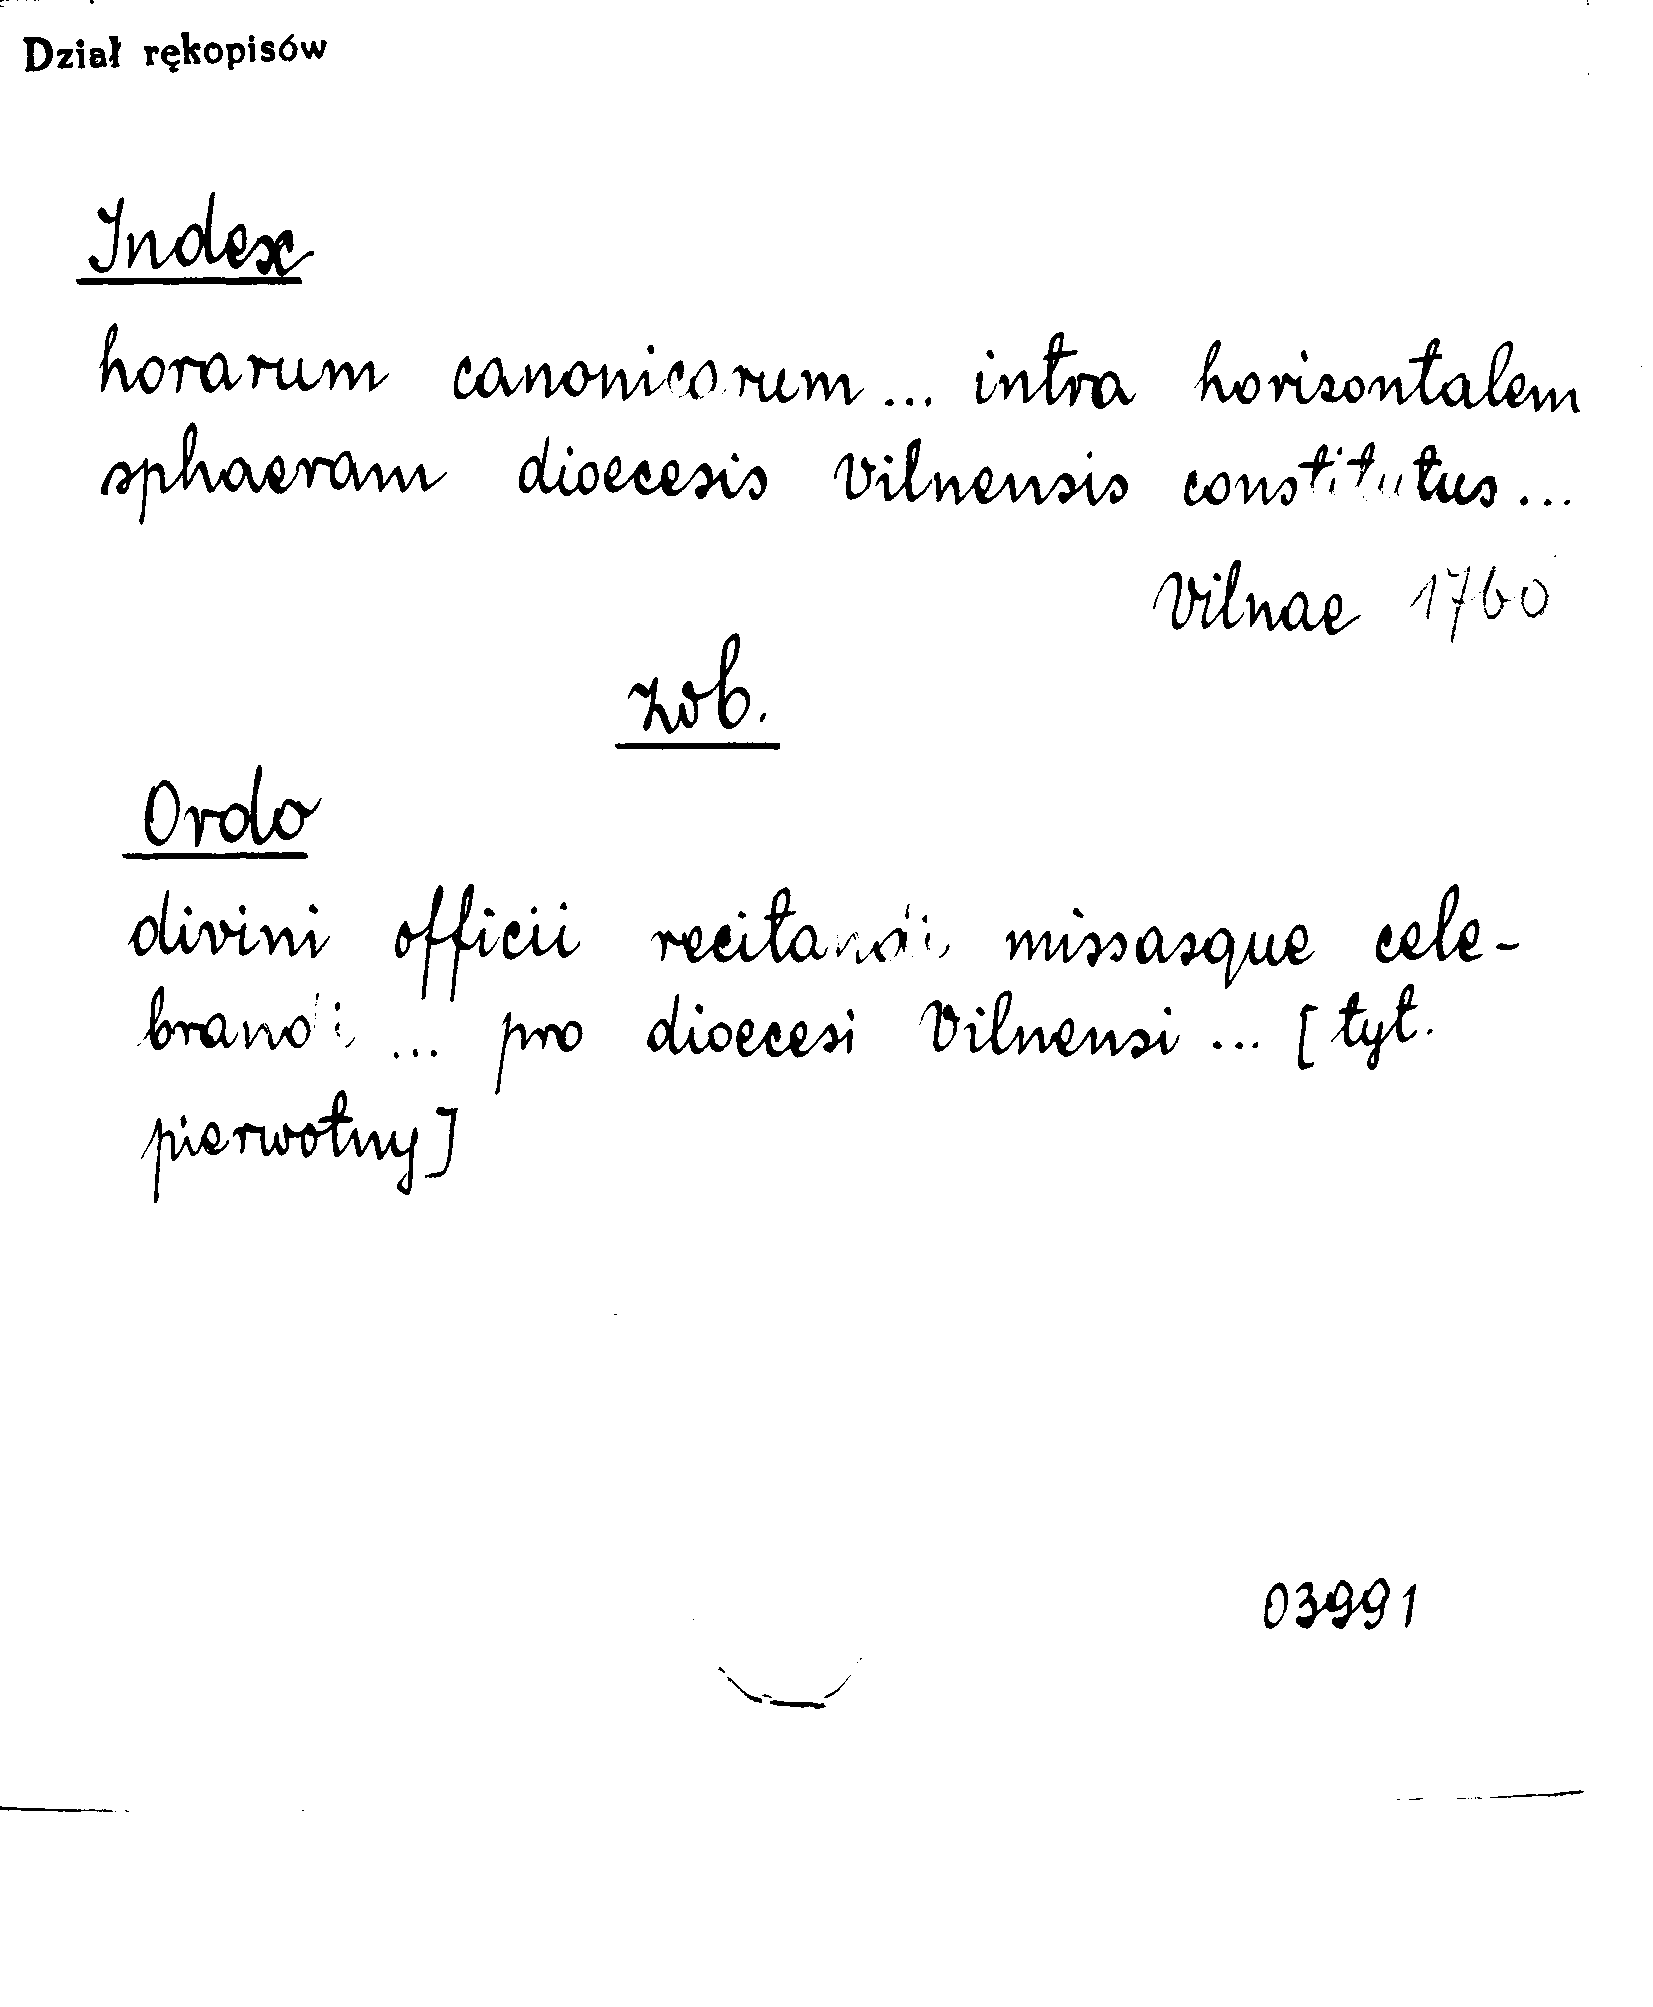 Dział rękopisów
Index
horarum canonicorum... intra horizontalem
sphaeram dioecesis Vilnensis constitutus...
Vilnae 1760
zob.
Ordo
divini officii recitandi missasque cele-
brandi ... pro dioecesi Vilnensi ... [tyt.
pierwotny]
03991